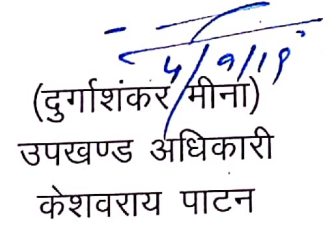 4/9/19
(दुर्गाशंकर मीना)
उपखण्ड अधिकारी
केशवराय पाटन